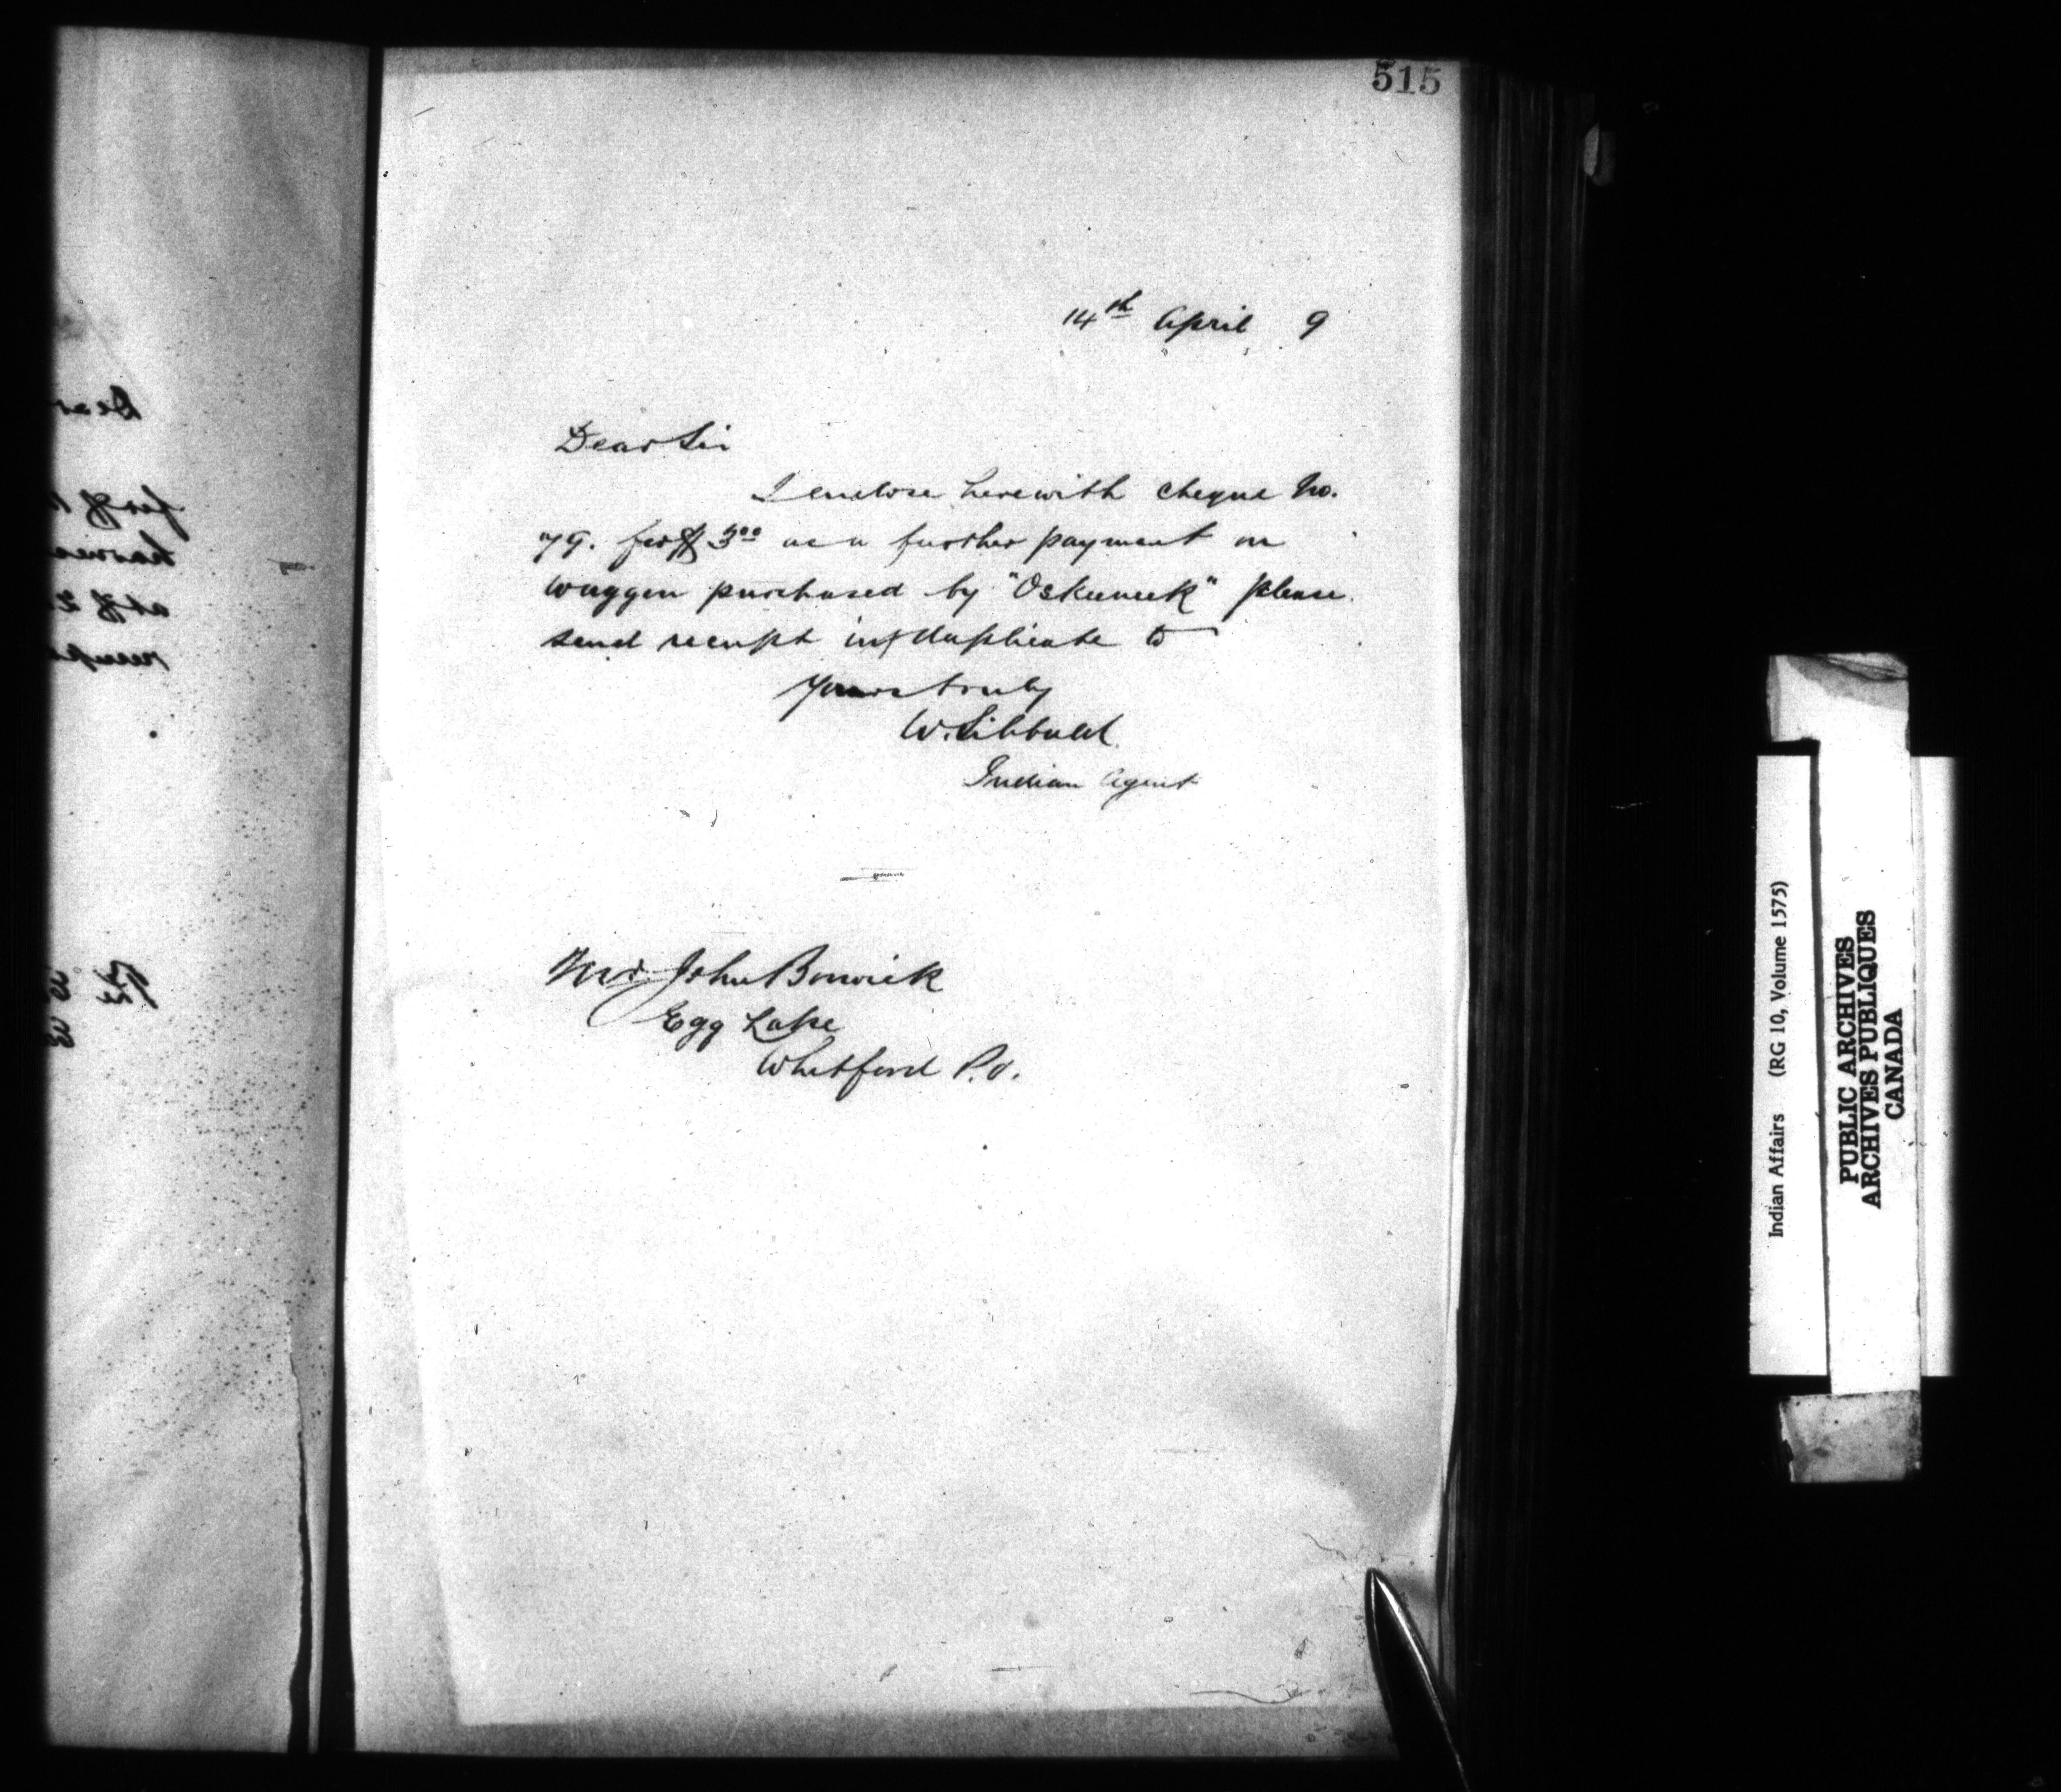 515
14th April 9
Dear Sir
I enclose herewith cheque No.
79. for $3.00 as a further payment on
waggon purchased by "Oskeneek" please
send receipt in duplicate to
Yours truly
W. Sibbald
Indian Agent
Mr. John Borwick
Egg Lake
Whitford P.O.
Indian Affairs (RG 10, Volume 1575)
PUBLIC ARCHIVES
ARCHIVES PUBLIQUES
CANADA